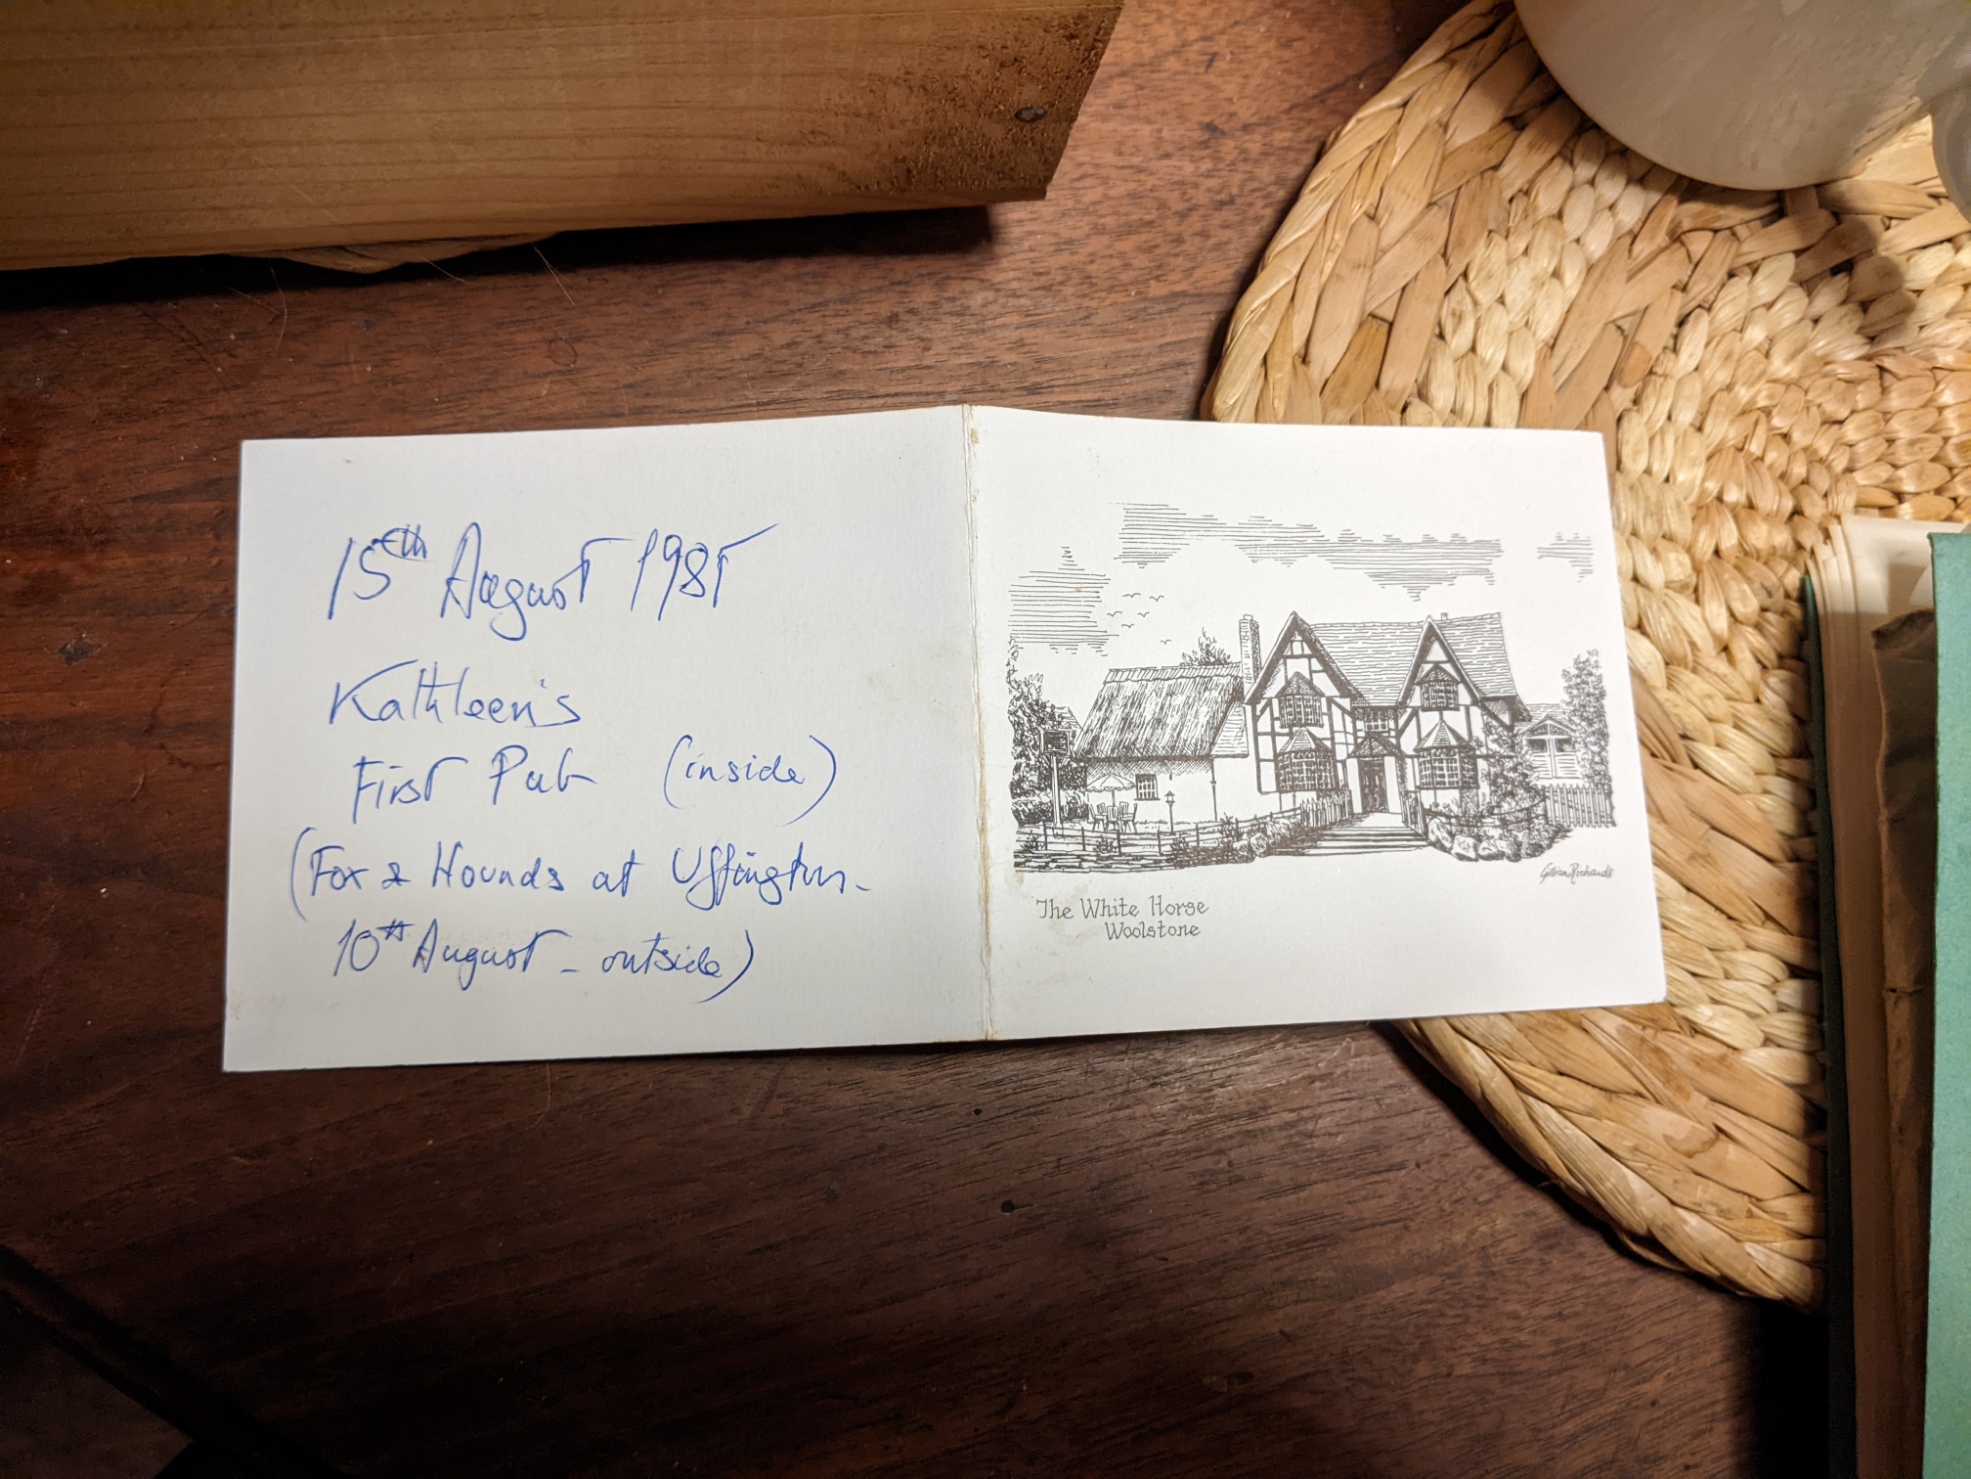 15th August 1985
Kathleen's
First Pub (inside)
(Fox & Hounds at Uffington -
10th August - outside)
The White Horse
Woolstone
Richards